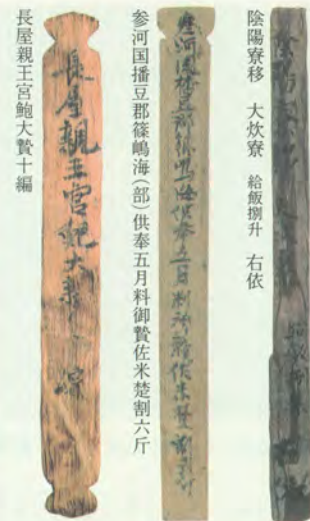 陰陽寮移 大炊寮 給飯捌升 右依
参河国播豆郡篠嶋海(部)供奉五月料御贄佐米楚割六斤
長屋親王宮鮑大贄十編